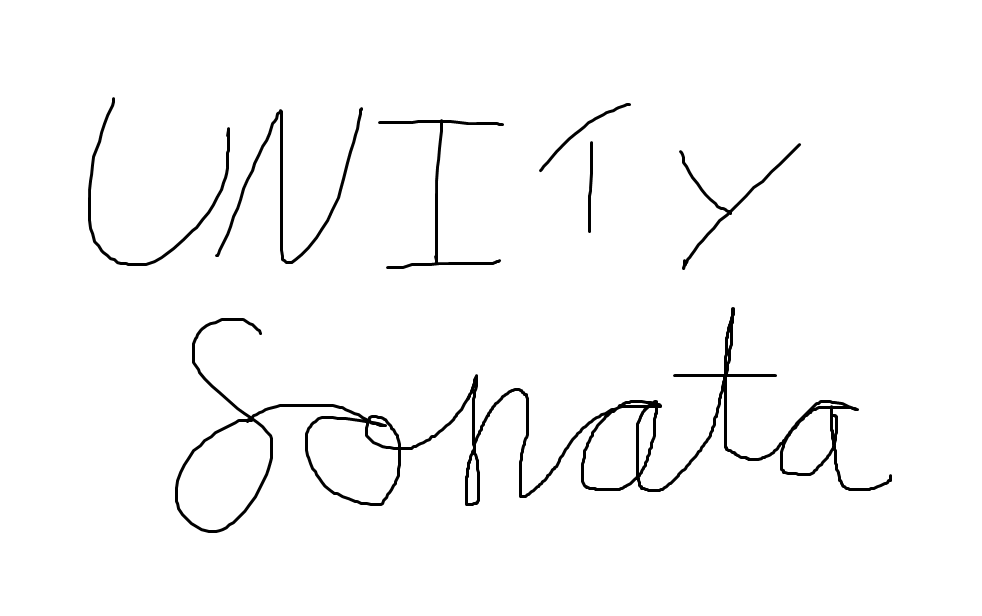 UNITY
Sonata